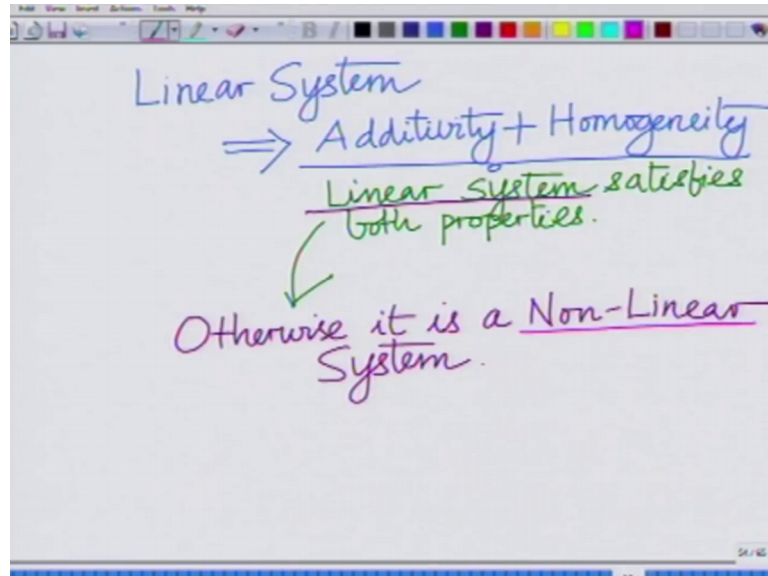 Edit View Insert Actions Tools Help
Linear System
⇒ Additivity + Homogeneity
Linear system satisfies
both properties.
Otherwise it is a Non-Linear
System.
54/65